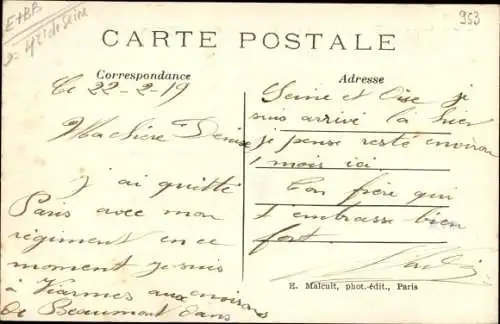 E+BB
953
CARTE POSTALE
Correspondance
Adresse
Ce 22-2-19
Ma chère Denise
j ai quitté
Paris avec mon
régiment en ce
moment je suis
à Viarmes aux environs
de Beaumont dans
Seine et Oise je
suis arrivé la hier
je pense resté environ
1 mois ici.
Ton frère qui
t'embrasse bien
fort.
H. Malcuit, phot.-édit., Paris